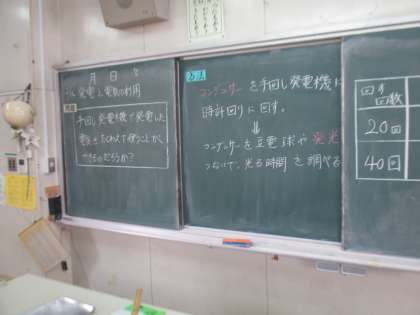 月 日
発電と電気の利用
問題
手回し発電機で発電した
電気をたくわえて使うことが
できるのだろうか？
方法
コンデンサーを手回し発電機に
時計回りに回す。
⇓
コンデンサーを豆電球や発光
つないで、光る時間を調べる
回す
回数
20回
40回